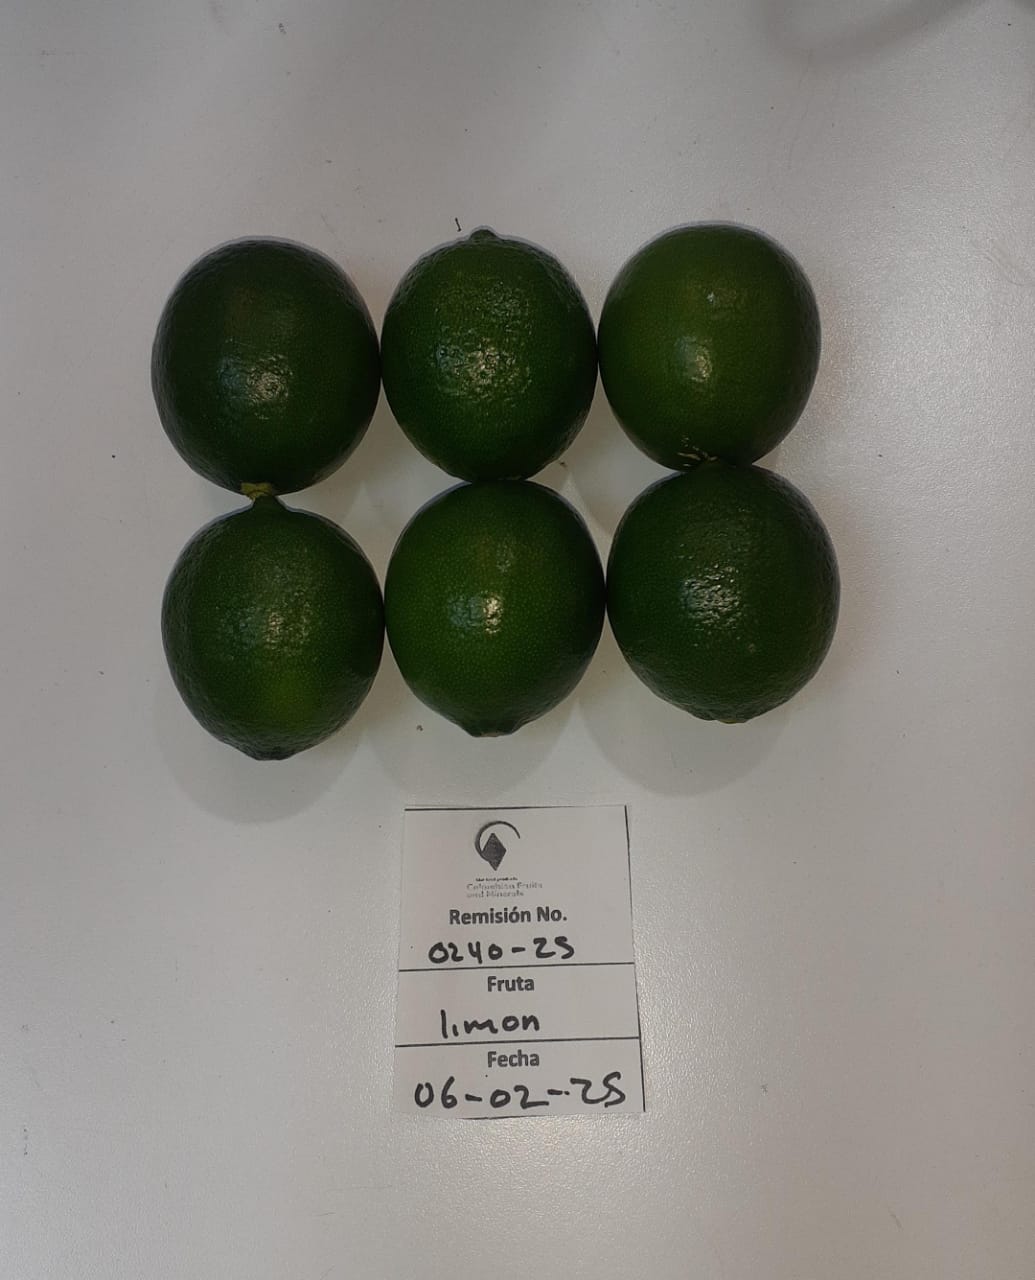 Colombian Fruits
and Minerals
Remisión No.
0240-25
Fruta
limon
Fecha
06-02-25